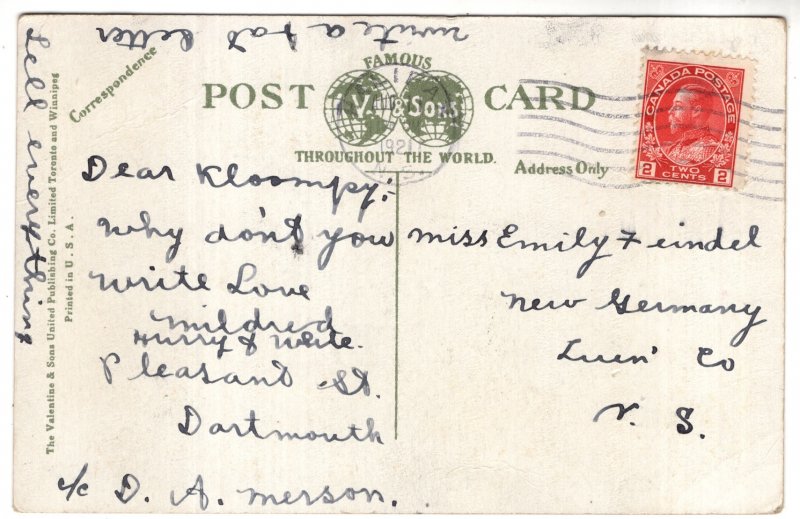 write a fat letter
Tell everything
Correspondence
The Valentine & Sons United Publishing Co. Limited Toronto and Winnipeg
Printed in U.S.A.
FAMOUS
POST CARD
V. & Sons
THROUGHOUT THE WORLD.
Address Only
1921
N. S.
CANADA POSTAGE
2 2
TWO
CENTS
Dear Kloompy;-
Why don't you
write Love
Mildred
Hurry & write.
Pleasant St.
Dartmouth
c/o D. A. Merson.
Miss Emily Feindel
New Germany
Luen' Co
N. S.